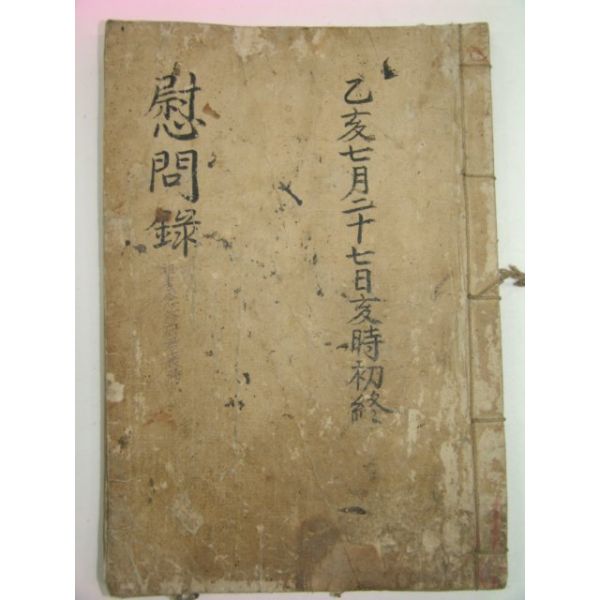 乙亥七月二十七日亥時初終
慰問錄